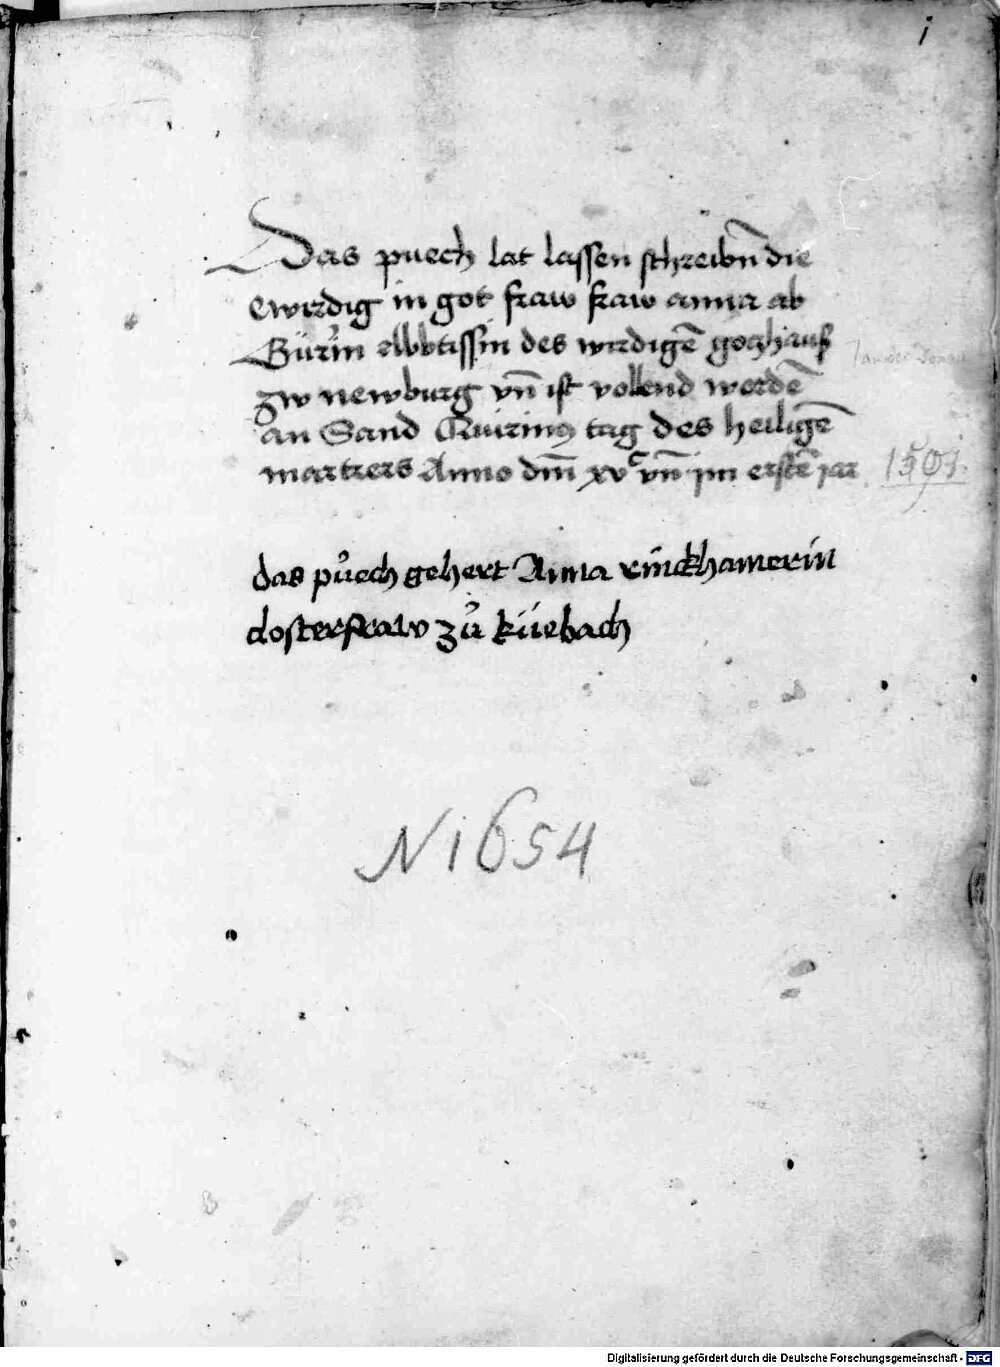 i
Das puech lat lassen schreibn̄ die
ewirdig in got fraw fraw anna ab
Gürin ebbtissin des wirdigē goczhauß
zw newburg vn̄ ist vollend wordē
an Sand Quirinꝰ tag des heiligē
martrers Anno dm̄ xvᶜ vn̄ im erstē jar 1501.
das půech gehert Anna rinckhamerin
closterfraw zů küebach
N 1654
Digitalisierung gefördert durch die Deutsche Forschungsgemeinschaft - DFG